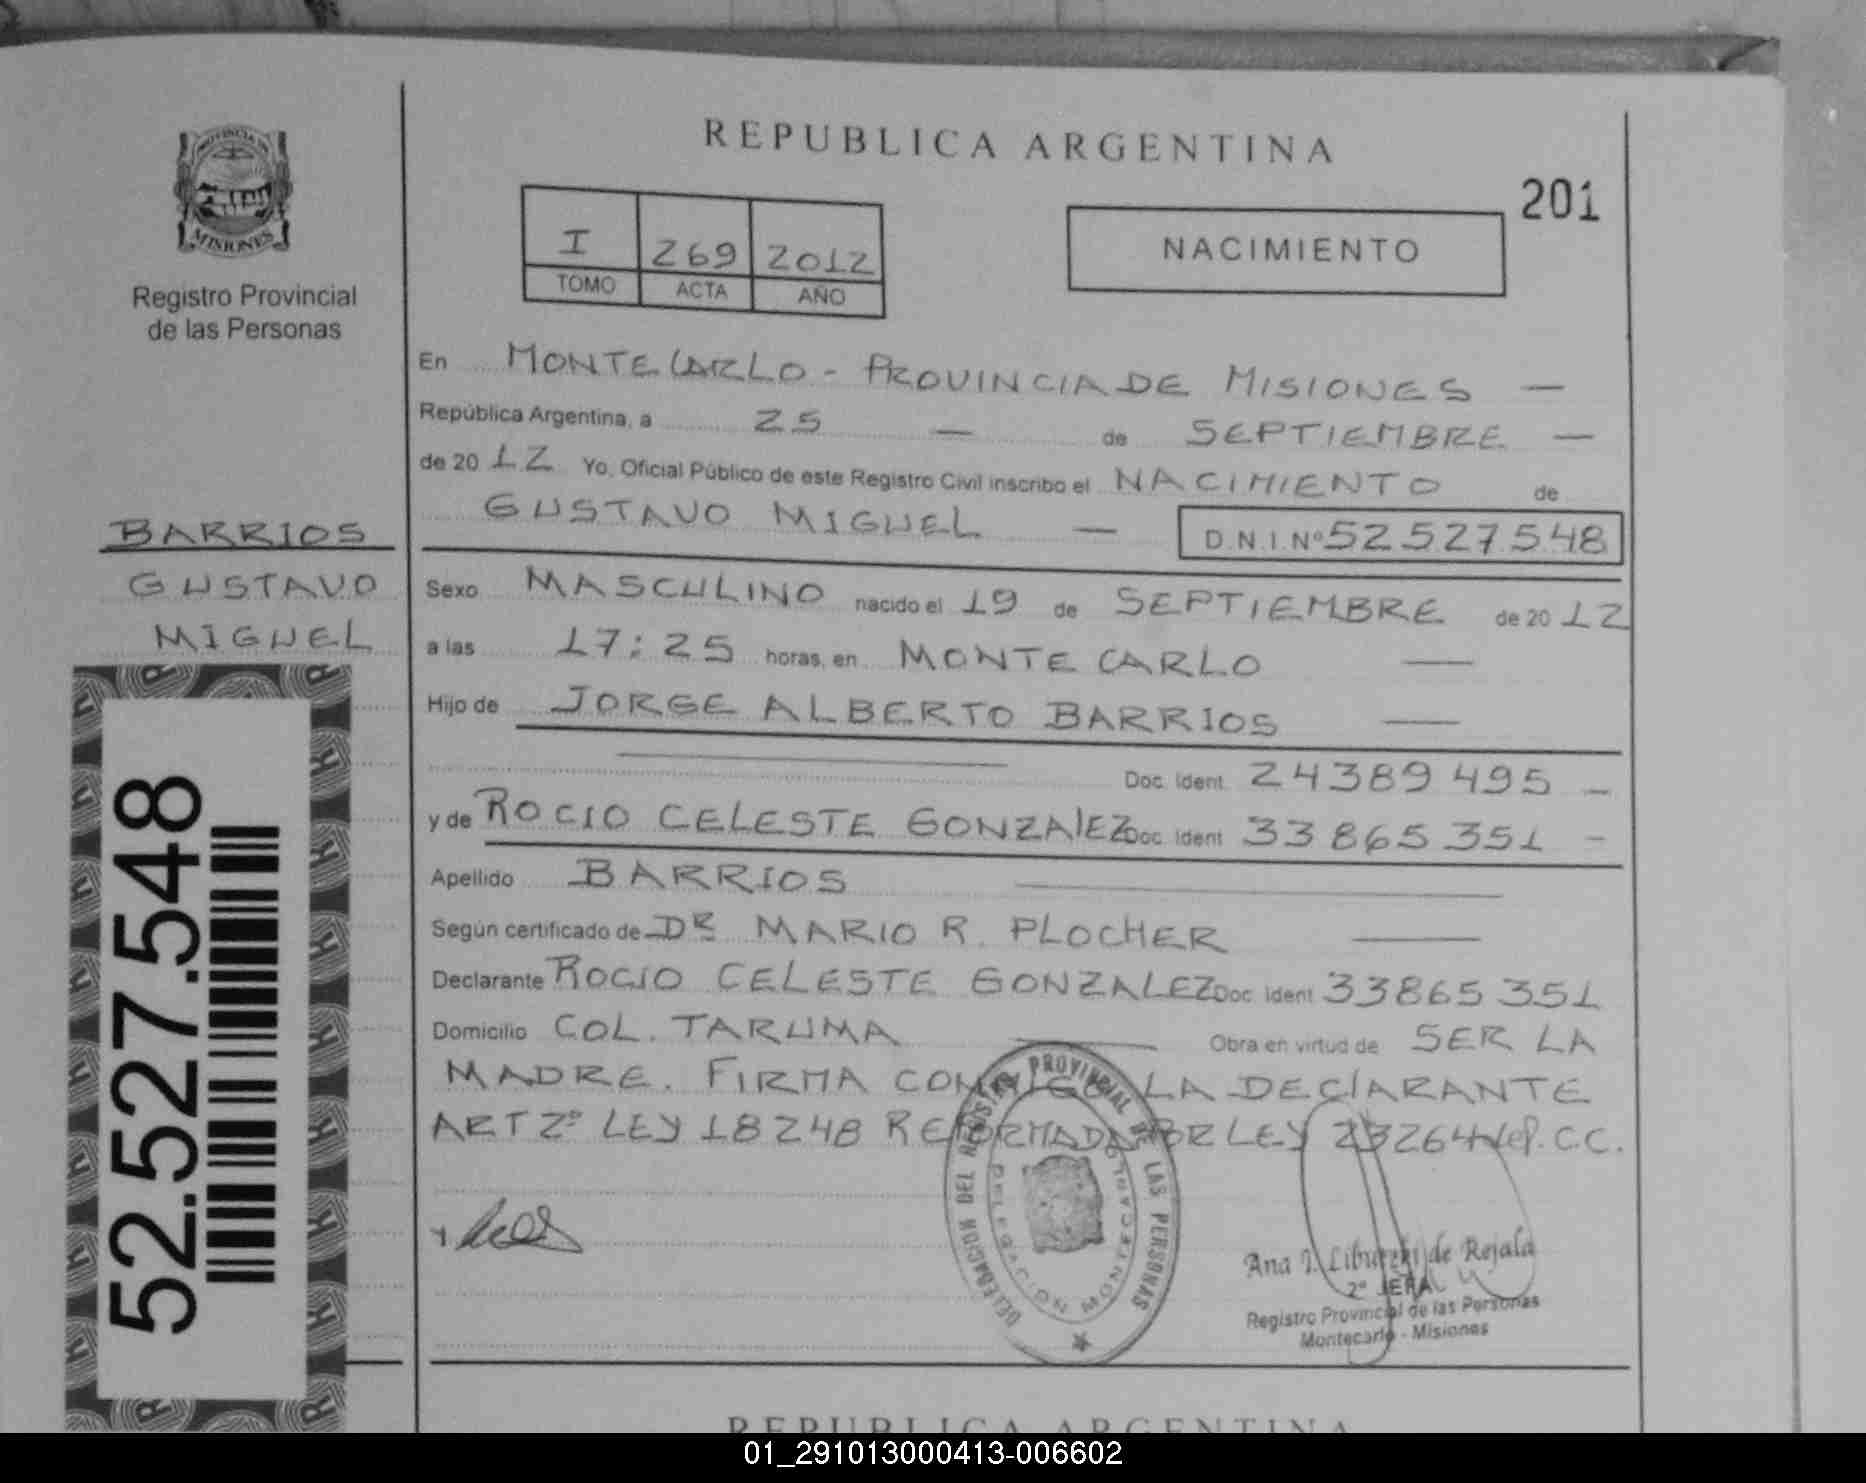 PROVINCIA DE
MISIONES
Registro Provincial
de las Personas
BARRIOS
GUSTAVO
MIGUEL
52.527.548
REPUBLICA ARGENTINA
201
I 269 2012
TOMO ACTA AÑO
NACIMIENTO
En MONTECARLO - PROVINCIA DE MISIONES —
República Argentina, a 25 — de SEPTIEMBRE —
de 2012 Yo, Oficial Público de este Registro Civil inscribo el NACIMIENTO de
GUSTAVO MIGUEL — D.N.I.Nº 52527548
Sexo MASCULINO nacido el 19 de SEPTIEMBRE de 2012
a las 17:25 horas, en MONTECARLO —
Hijo de JORGE ALBERTO BARRIOS —
Doc. Ident. 24389495 –
y de ROCIO CELESTE GONZALEZ Doc. Ident 33865351 –
Apellido BARRIOS
Según certificado de DR MARIO R. PLOCHER —
Declarante ROCIO CELESTE GONZALEZ Doc Ident 33865351
Domicilio COL. TARUMA — Obra en virtud de SER LA
MADRE. FIRMA CONMIGO LA DECLARANTE
ART 2º LEY 18248 REFORMADA POR LEY 23264 del C.C.
DELEGACION DEL REGISTRO PROVINCIAL DE LAS PERSONAS
DELEGACION MONTECARLO
Ana I. de Rejala
2º JEFA
Registro Provincial de las Personas
Montecarlo - Misiones
REPUBLICA ARGENTINA
01_291013000413-006602